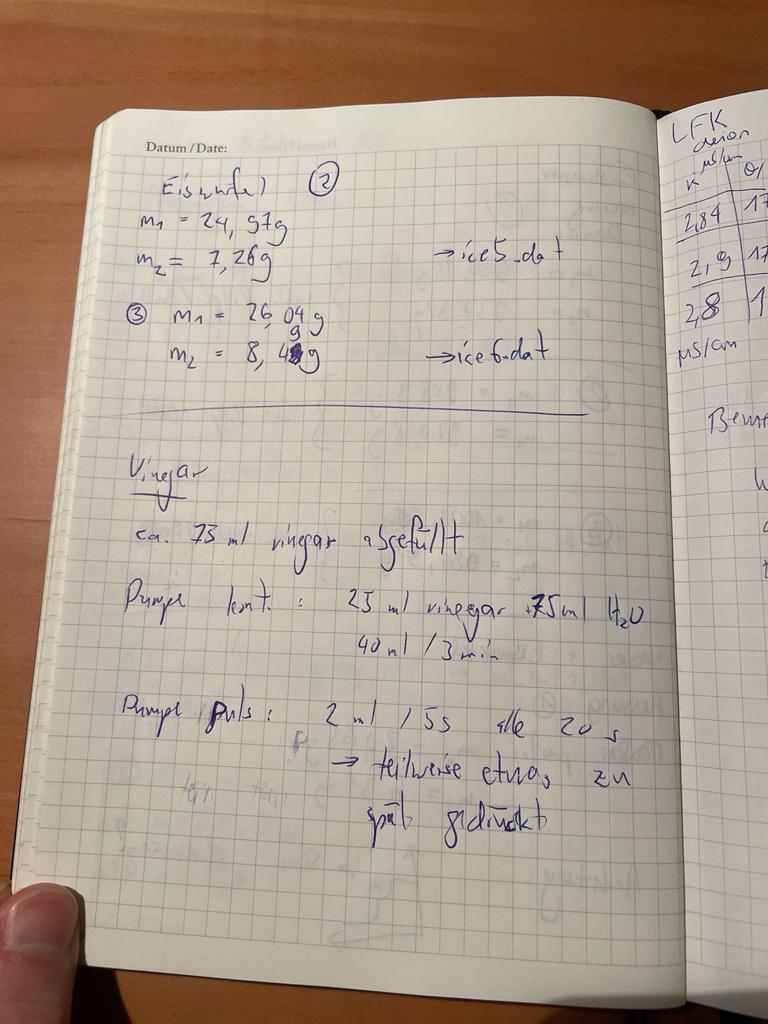 Datum / Date:
Eiswürfel ②
m₁ = 24,97g
m₂ = 7,26g → ice5.dat
③ m₁ = 26,04g
m₂ = 8,49g → ice6.dat
Vinegar
ca. 75 ml vinegar abgefüllt
Pumpe kont. : 25 ml vinegar + 75 ml H₂O
40 ml / 3 min
Pumpe puls : 2 ml / 5s alle 20 s
→ teilweise etwas zu
spät gedrückt
LFK
deion
κ μS/cm
2,84 17
2,9 17
2,8 1
μS/cm